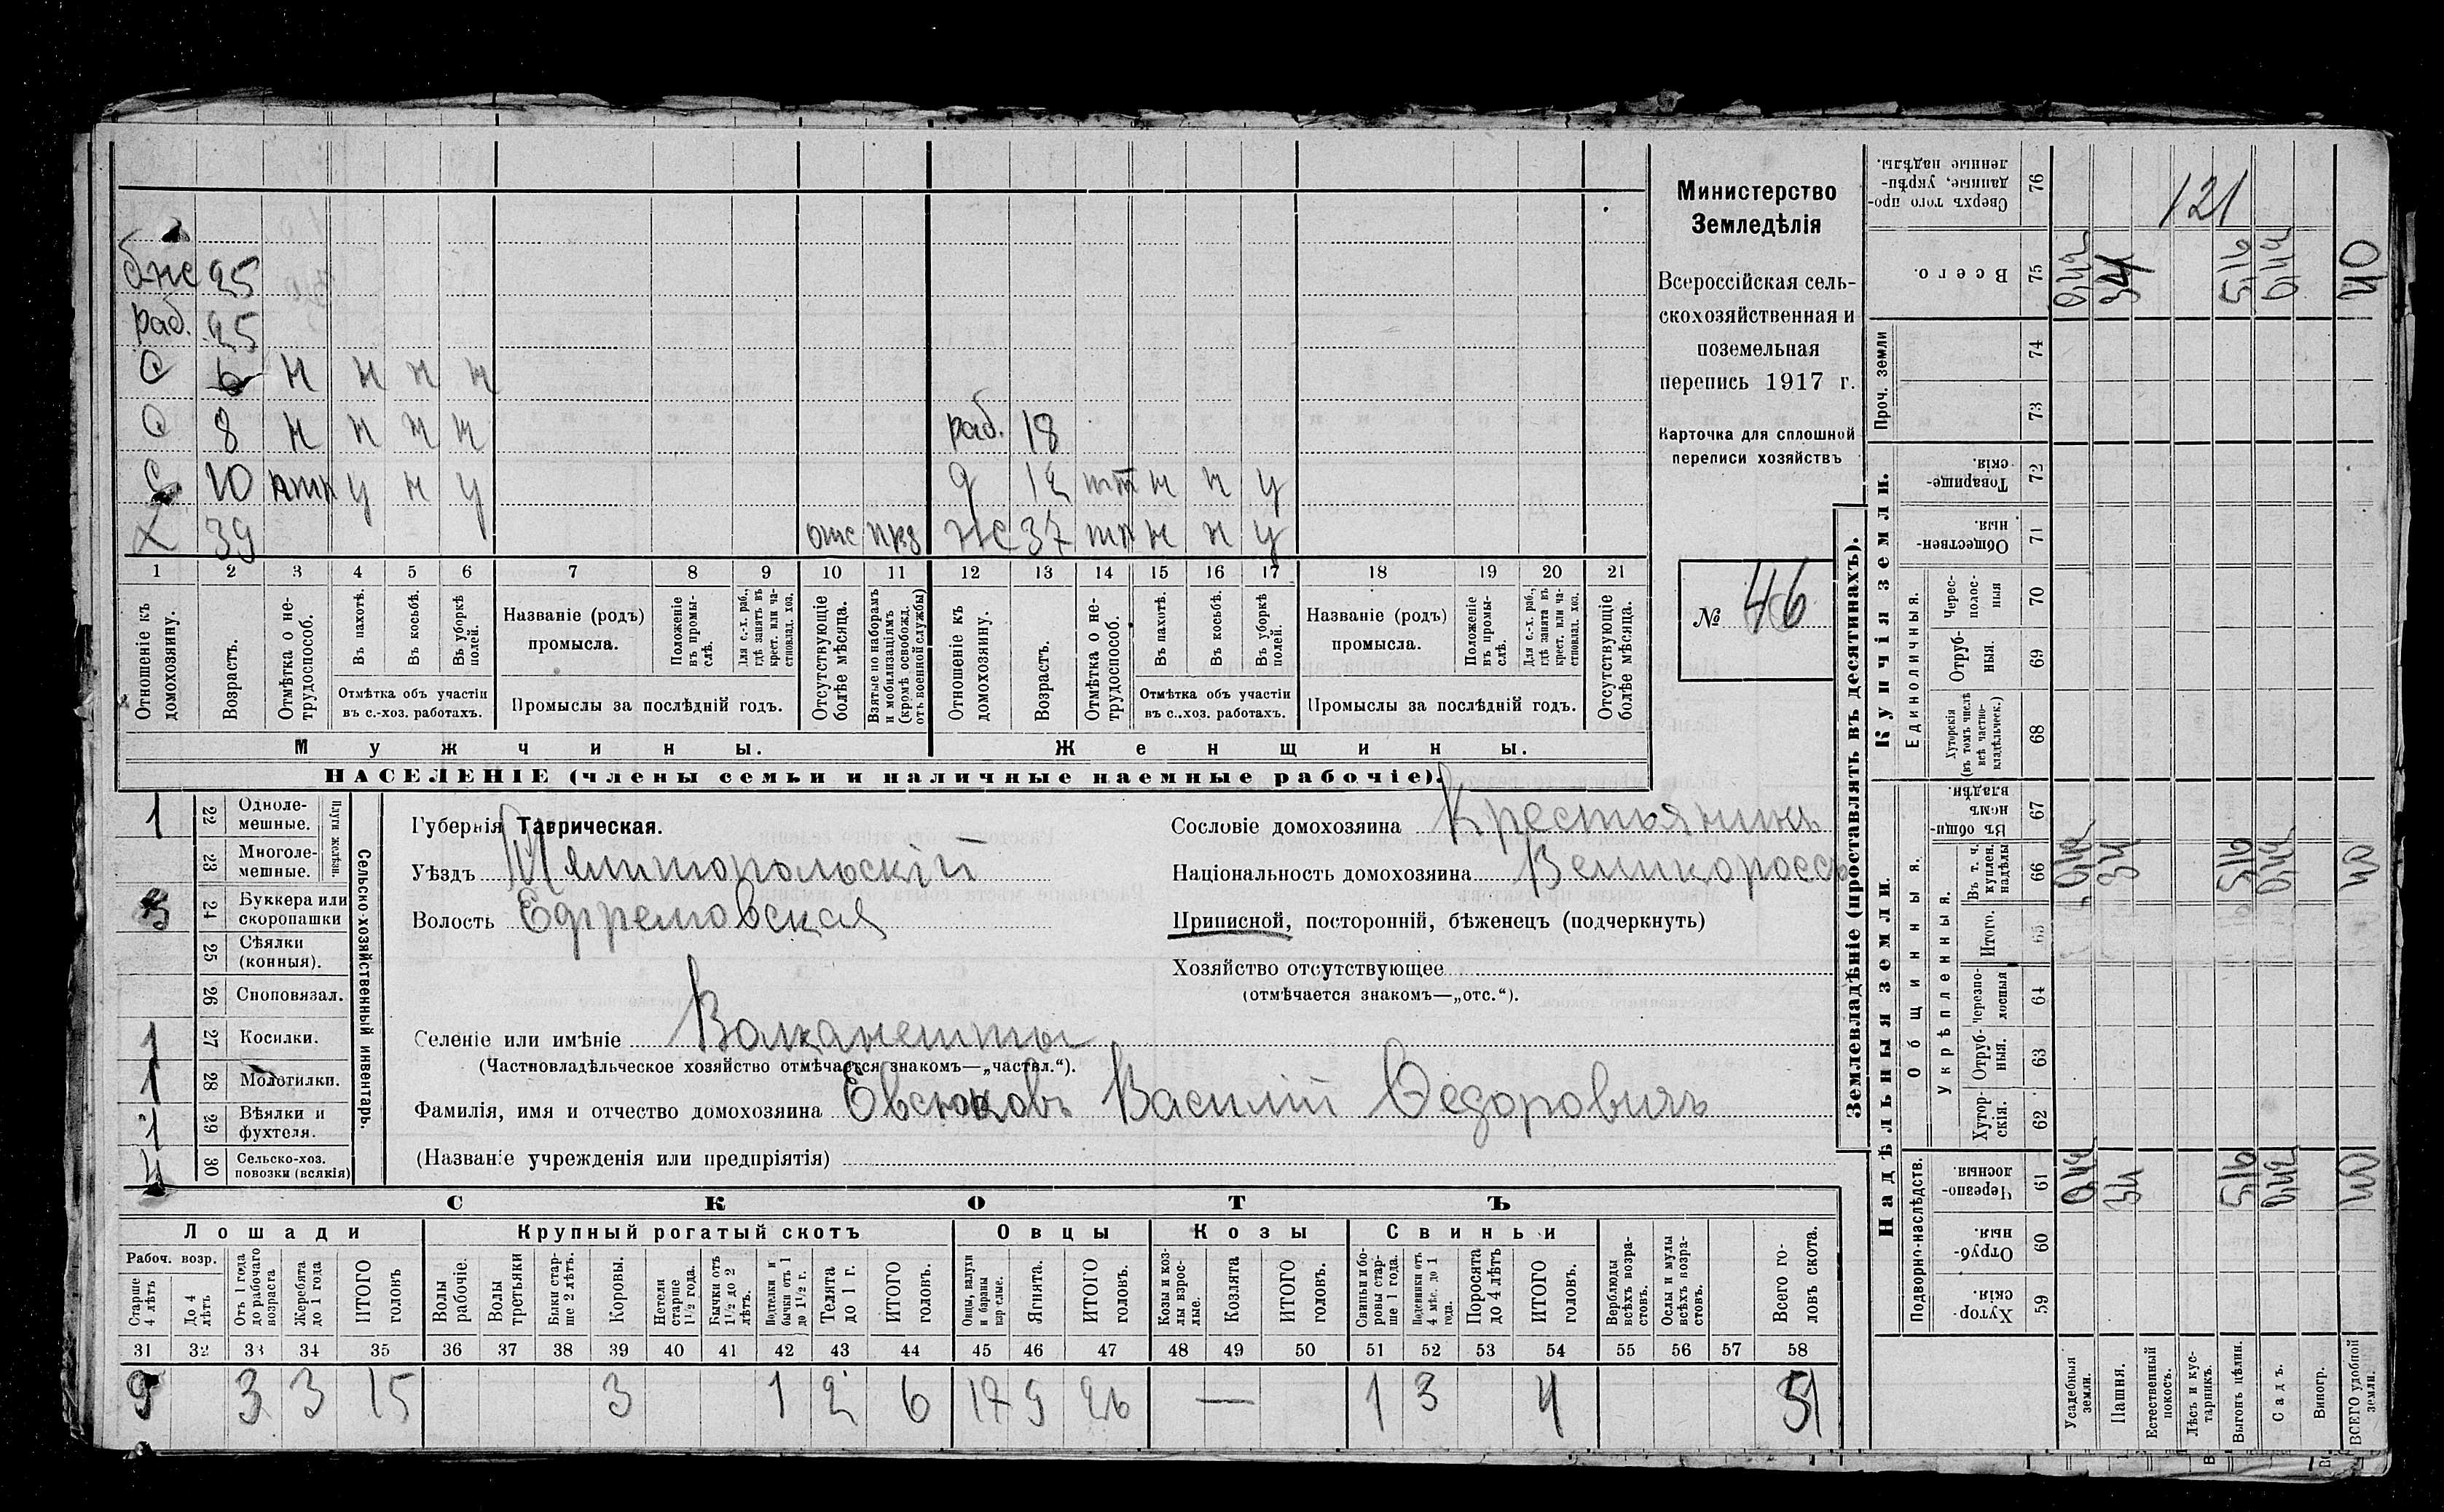 бже 25
раб. 25
С 6 н н н н
С 8 н н н н раб. 18
С 10 у н у д 12 н н у
Х 39 отс 37 н н у
1 2 3 4 5 6 7 8 9 10 11 12 13 14 15 16 17 18 19 20 21
Отношеніе къ домохозяину.
Возрастъ.
Отмѣтка о не-трудоспособ.
Въ пахотѣ.
Въ косьбѣ.
Въ уборкѣ полей.
Отмѣтка объ участіи въ с.-хоз. работахъ.
Названіе (родъ) промысла.
Положеніе въ промы-слѣ.
Для с.-х. раб., гдѣ занятъ въ крест. или ча-стновлад. хоз.
Промыслы за послѣдній годъ.
Отсутствующіе болѣе мѣсяца.
Взятые по наборамъ и мобилизаціямъ (кромѣ освобожд. отъ военной службы)
Отношеніе къ домохозяину.
Возрастъ.
Отмѣтка о не-трудоспособ.
Въ пахотѣ.
Въ косьбѣ.
Въ уборкѣ полей.
Отмѣтка объ участіи въ с.-хоз. работахъ.
Названіе (родъ) промысла.
Положеніе въ промы-слѣ.
Для с.-х. раб., гдѣ занятъ въ крест. или ча-стновлад. хоз.
Промыслы за послѣдній годъ.
Отсутствующіе болѣе мѣсяца.
Мужчины. Женщины.
НАСЕЛЕНІЕ (члены семьи и наличные наемные рабочіе).
Министерство
Земледѣлія
Всероссійская сель-
скохозяйственная и
поземельная
перепись 1917 г.
Карточка для сплошной
переписи хозяйствъ
№ 46
Сельско-хозяйственный инвентарь.
Плуги желѣзн.
1 22 Одноле-мешные.
23 Многоле-мешные.
3 24 Буккера или скоропашки
25 Сѣялки (конныя).
26 Споповязал.
1 27 Косилки.
1 28 Молотилки.
1 29 Вѣялки и фухтеля.
4 30 Сельско-хоз. повозки (всякія)
Губернія Таврическая.
Уѣздъ Мелитопольскій
Волость Ефремовская
Сословіе домохозяина Крестьянинъ
Національность домохозяина Великороссъ
Приписной, посторонній, бѣженецъ (подчеркнуть)
Хозяйство отсутствующее
(отмѣчается знакомъ—„отс.“).
Селеніе или имѣніе Волканешты
(Частновладѣльческое хозяйство отмѣчается знакомъ—„частвл.“).
Фамилія, имя и отчество домохозяина Евсюковъ Василій Ѳедоровичъ
(Названіе учрежденія или предпріятія)
СКОТЪ
Лошади Крупный рогатый скотъ Овцы Козы Свиньи
Рабоч. возр.
Старше 4 лѣтъ
До 4 лѣтъ
Отъ 1 года до рабочаго возраста
Жеребята до 1 года
ИТОГО головъ
Волы рабочіе.
Волы третьяки
Быки стар-ше 2 лѣтъ.
Коровы.
Нетели старше 1½ года.
Бычки отъ 1½ до 2 лѣтъ.
бычки отъ 1 до 1½ г.
Телята до 1 г.
ИТОГО головъ.
Овцы, валухи и бараны взрослые.
Ягнята.
ИТОГО головъ.
Козы и коз-лы взрос-лые.
Козлята
ИТОГО головъ.
Свиньи и бо-ровы стар-ше 1 года.
Подсвинки отъ 4 мѣс. до 1 года.
Поросята до 4 лѣтъ
ИТОГО головъ.
Верблюды всѣхъ возра-стовъ.
Ослы и мулы всѣхъ возра-стовъ.
Всего го-ловъ скота.
31 32 33 34 35 36 37 38 39 40 41 42 43 44 45 46 47 48 49 50 51 52 53 54 55 56 57 58
9 3 3 15 3 1 2 6 17 9 26 — 1 3 4 51
Землевладѣніе (проставлять въ десятинахъ).
Купчія земли.
Надѣльныя земли.
121
76 Сверхъ того про-данные, укрѣп-ленные надѣлы.
75 Всего. 0,42 34 5,16 0,42 40
Проч. земли
74
73
72 Товарище-скія.
71 Обществен-ныя.
Единоличныя.
70 Черес-полос-ныя
69 Отруб-ныя.
68 Хуторскія (въ томъ числѣ всѣ частно-владѣльческ.)
Общинныя.
67 Въ общин-номъ владѣн.
Укрѣпленныя.
66 Въ т. ч. куплен. надѣлы 0,42 34 5,16 0,42 40
65 Итого.
64 Черезпо-лосныя
63 Отруб-ныя.
62 Хутор-скія.
Подворно-наслѣдств.
61 Черезпо-лосныя 0,42 34 5,16 0,42 40
60 Отруб-ныя.
59 Хутор-скія.
Усадебныя земли.
Пашня.
Естественный покосъ.
Лѣсъ и кус-тарникъ.
Выгонъ цѣлин.
Садъ.
Виногр.
ВСЕГО удобной земли.